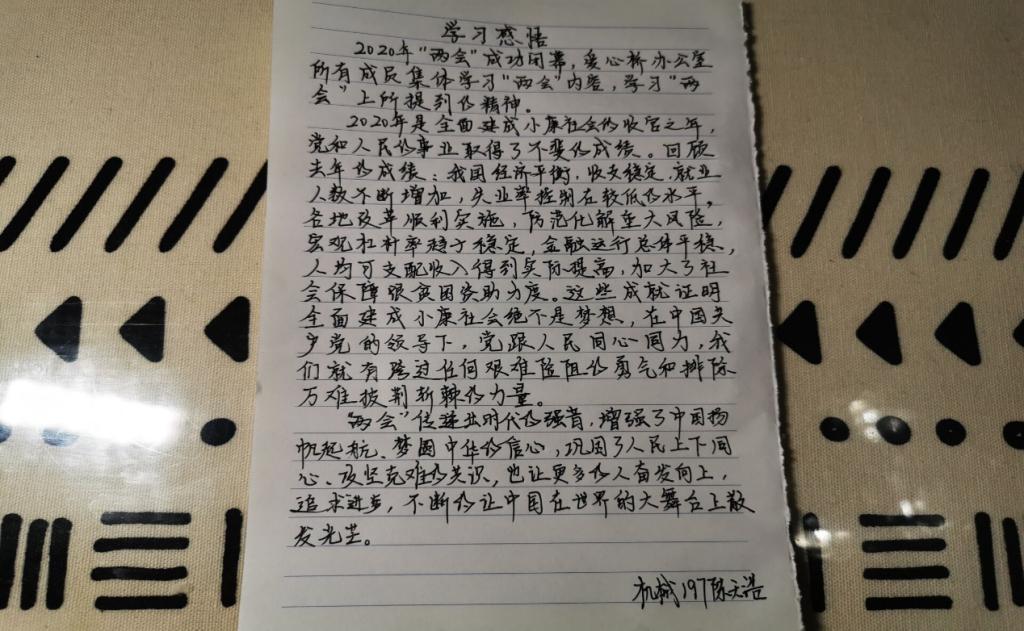 学习感悟
2020年“两会”成功闭幕，爱心桥办公室
所有成员集体学习“两会”内容，学习“两
会”上所提到的精神。
2020年是全面建成小康社会的收官之年，
党和人民的事业取得了不斐的成绩。回顾
去年的成绩：我国经济平衡，收支稳定，就业
人数不断增加，失业率控制在较低的水平。
各地改革顺利实施，防范化解重大风险，
宏观杠杆率趋于稳定，金融运行总体平稳，
人均可支配收入得到实际提高，加大了社
会保障跟贫困资助力度。这些成就证明
全面建成小康社会绝不是梦想，在中国共
产党的领导下，党跟人民同心同力，我
们就有跨过任何艰难险阻的勇气和排除
万难披荆斩棘的力量。
“两会”传递出时代的强音，增强了中国扬
帆起航、梦圆中华的信心，巩固了人民上下同
心、攻坚克难的共识，也让更多的人奋发向上，
追求进步，不断的让中国在世界的大舞台上散
发光芒。
机械197陈天浩